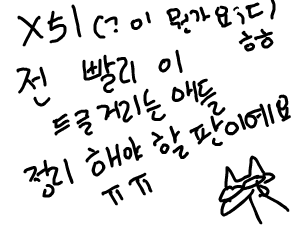 X51 (? 이 뭔가요;ㄷ)
ㅎㅎ
전 빨리 이
드글거리는 애들
정리 해야 할 판이에요
ㅠㅠ